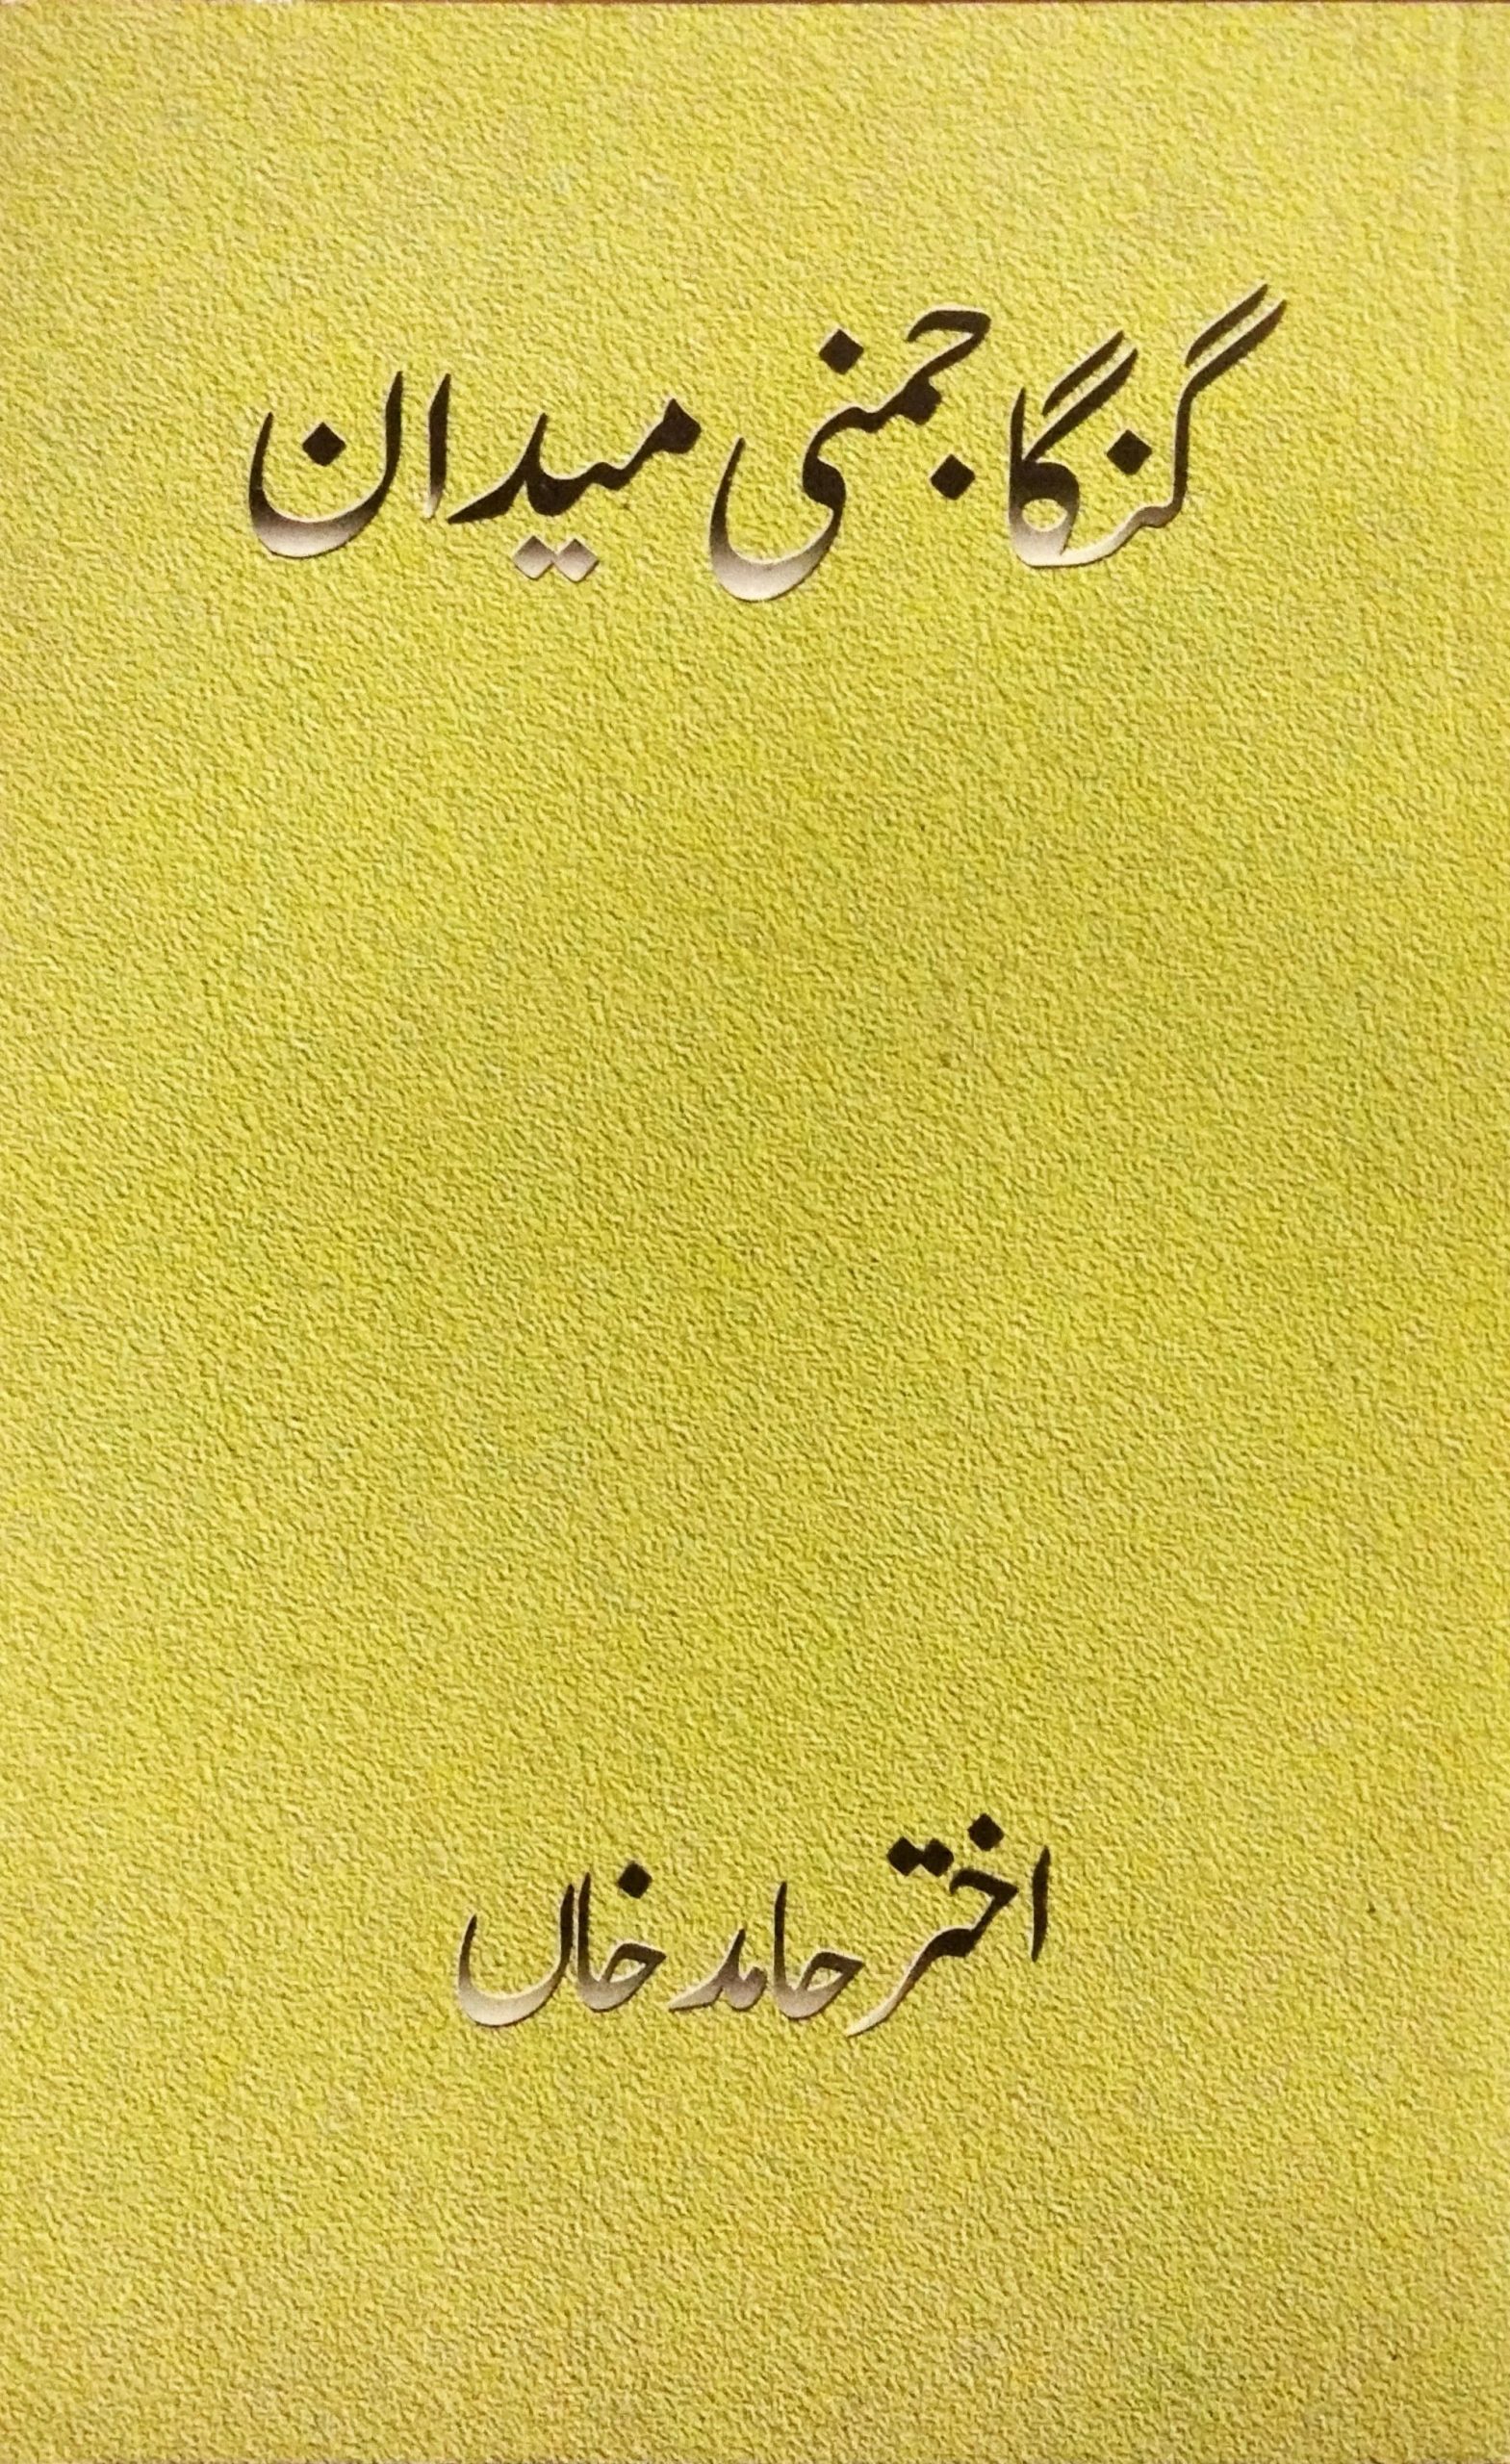 گنگا جمنی میدان
اختر حامد خاں